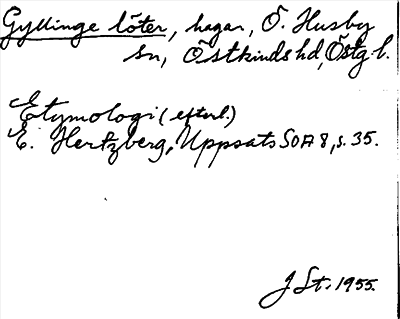 Gyllinge löter, hagar, Ö. Husby
sn, Östkinds hd, Östg. l.
Etymologi (efterl.)
E. Hertzberg, Uppsats SOA 8, s. 35.
J St. 1955.